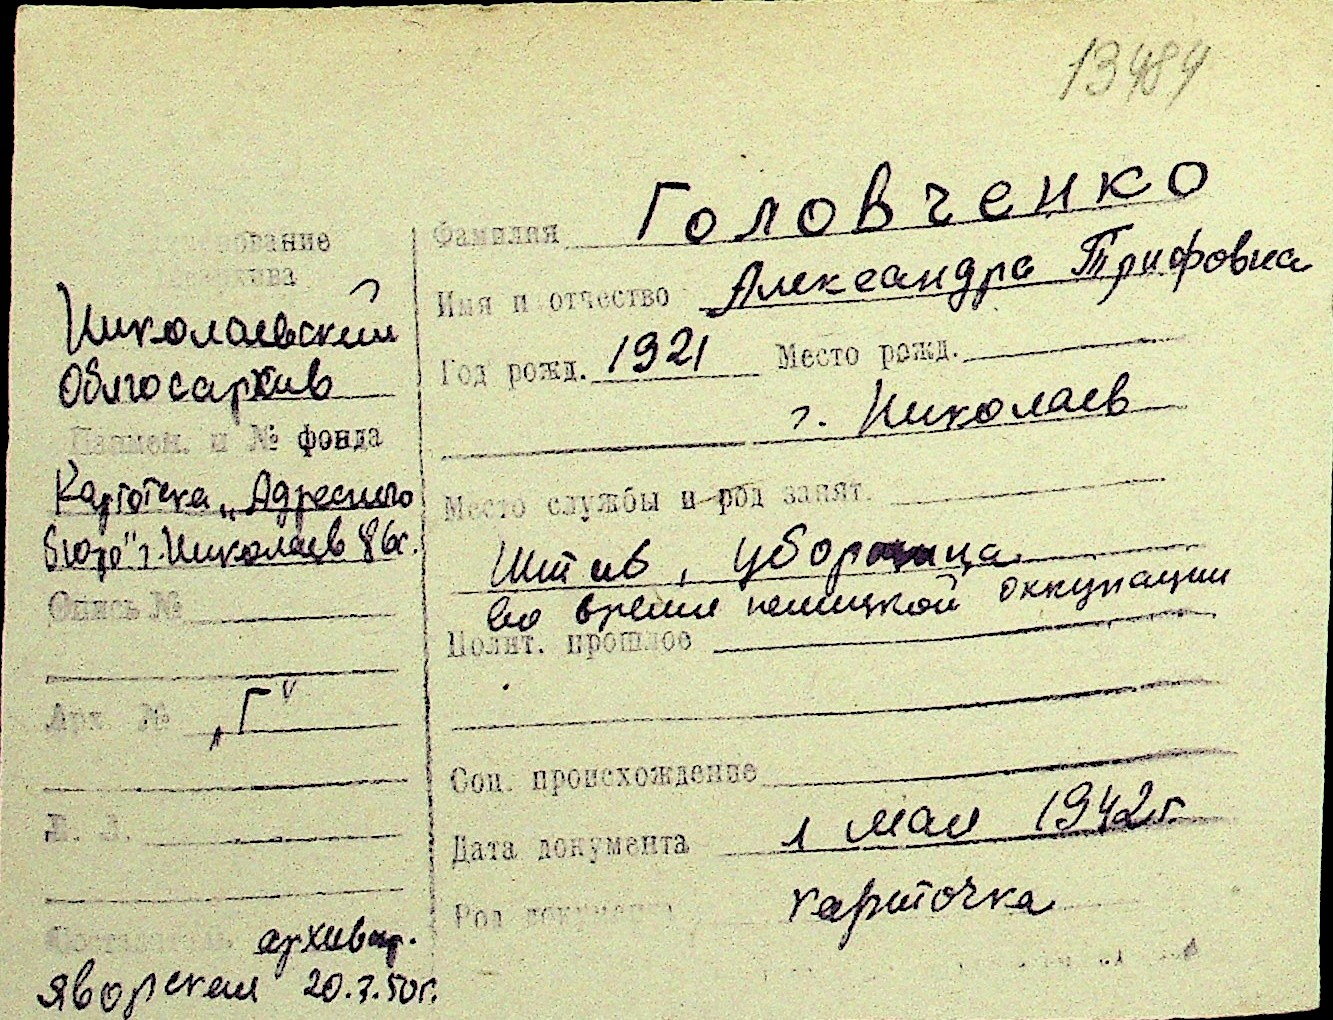 13484
Фамилия Головченко
Имя и отчество Александра Трифовна
Год рожд. 1921 Место рожд.
г. Николаев
Место службы и род занят.
Штив, уборщица
во время немецкой оккупации
Полит. прошлое
Соц. происхождение
Дата документа 1 мая 1942 г.
Род документа карточка
Наименование
архива
Николаевский
Облгосархив
Наимен. и № фонда
Картотека „Адресного
бюро" г. Николаев
Опись №
Арх. № „Г"
Л. Л.
Составитель архивар.
Яворская 20.3.50г.